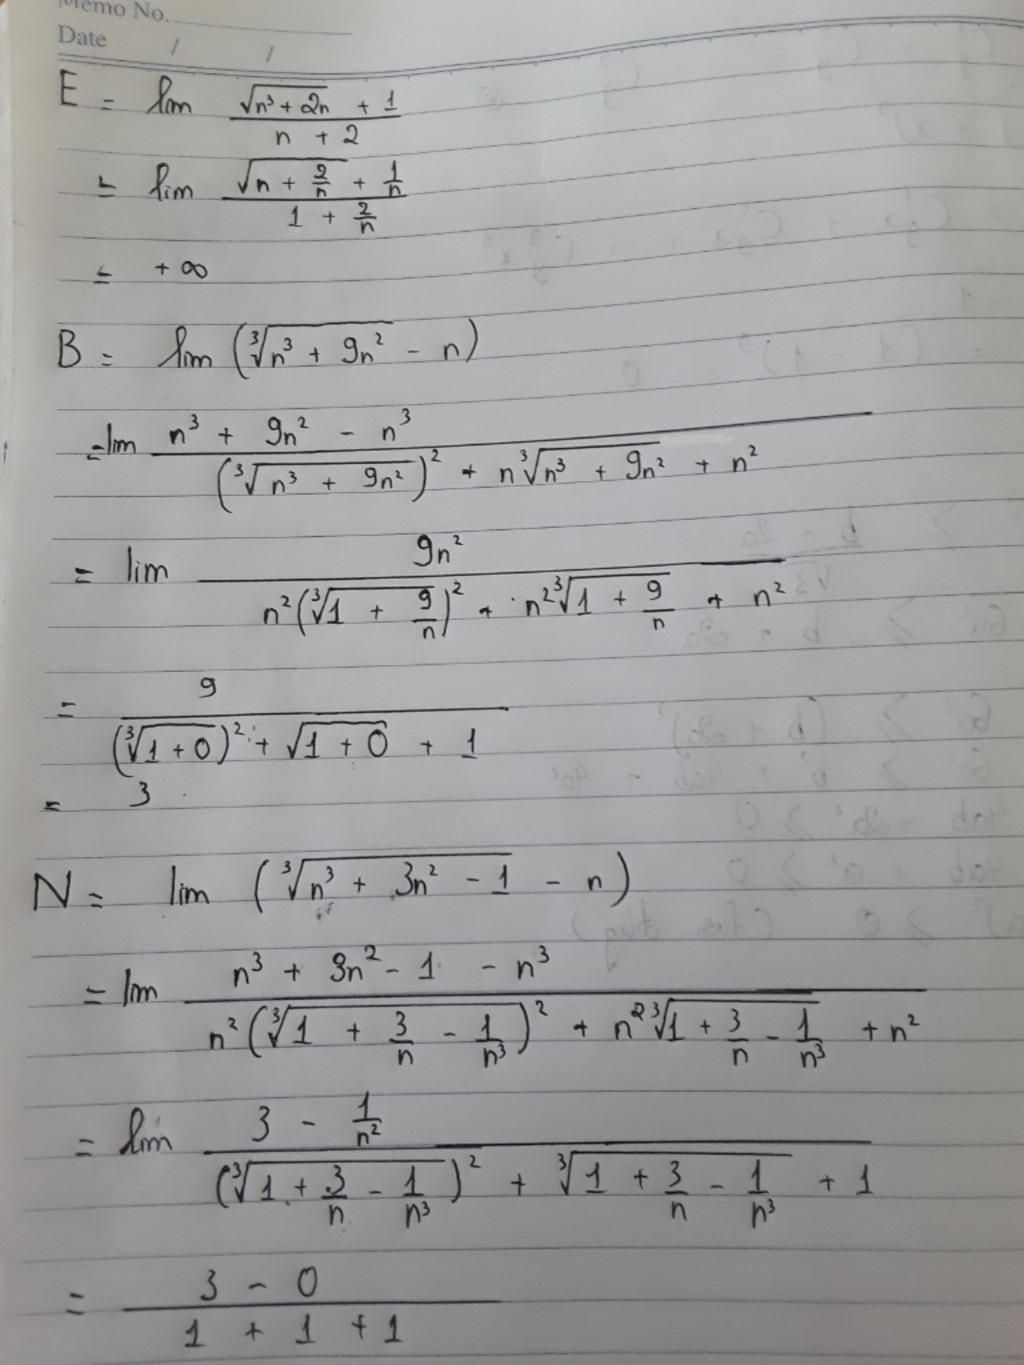 Memo No.
Date / /
E = lim (√(n³ + 2n) + 1) / (n + 2)
= lim (√(n + 2/n) + 1/n) / (1 + 2/n)
= +∞
B = lim (∛(n³ + 9n²) - n)
= lim (n³ + 9n² - n³) / ((∛(n³ + 9n²))² + n∛(n³ + 9n²) + n²)
= lim 9n² / (n²(∛(1 + 9/n))² + n²∛(1 + 9/n) + n²)
= 9 / ((∛(1 + 0))² + √(1 + 0) + 1)
= 3
N = lim (∛(n³ + 3n² - 1) - n)
= lim (n³ + 3n² - 1 - n³) / (n²(∛(1 + 3/n - 1/n³))² + n²∛(1 + 3/n - 1/n³) + n²)
= lim (3 - 1/n²) / ((∛(1 + 3/n - 1/n³))² + ∛(1 + 3/n - 1/n³) + 1)
= (3 - 0) / (1 + 1 + 1)